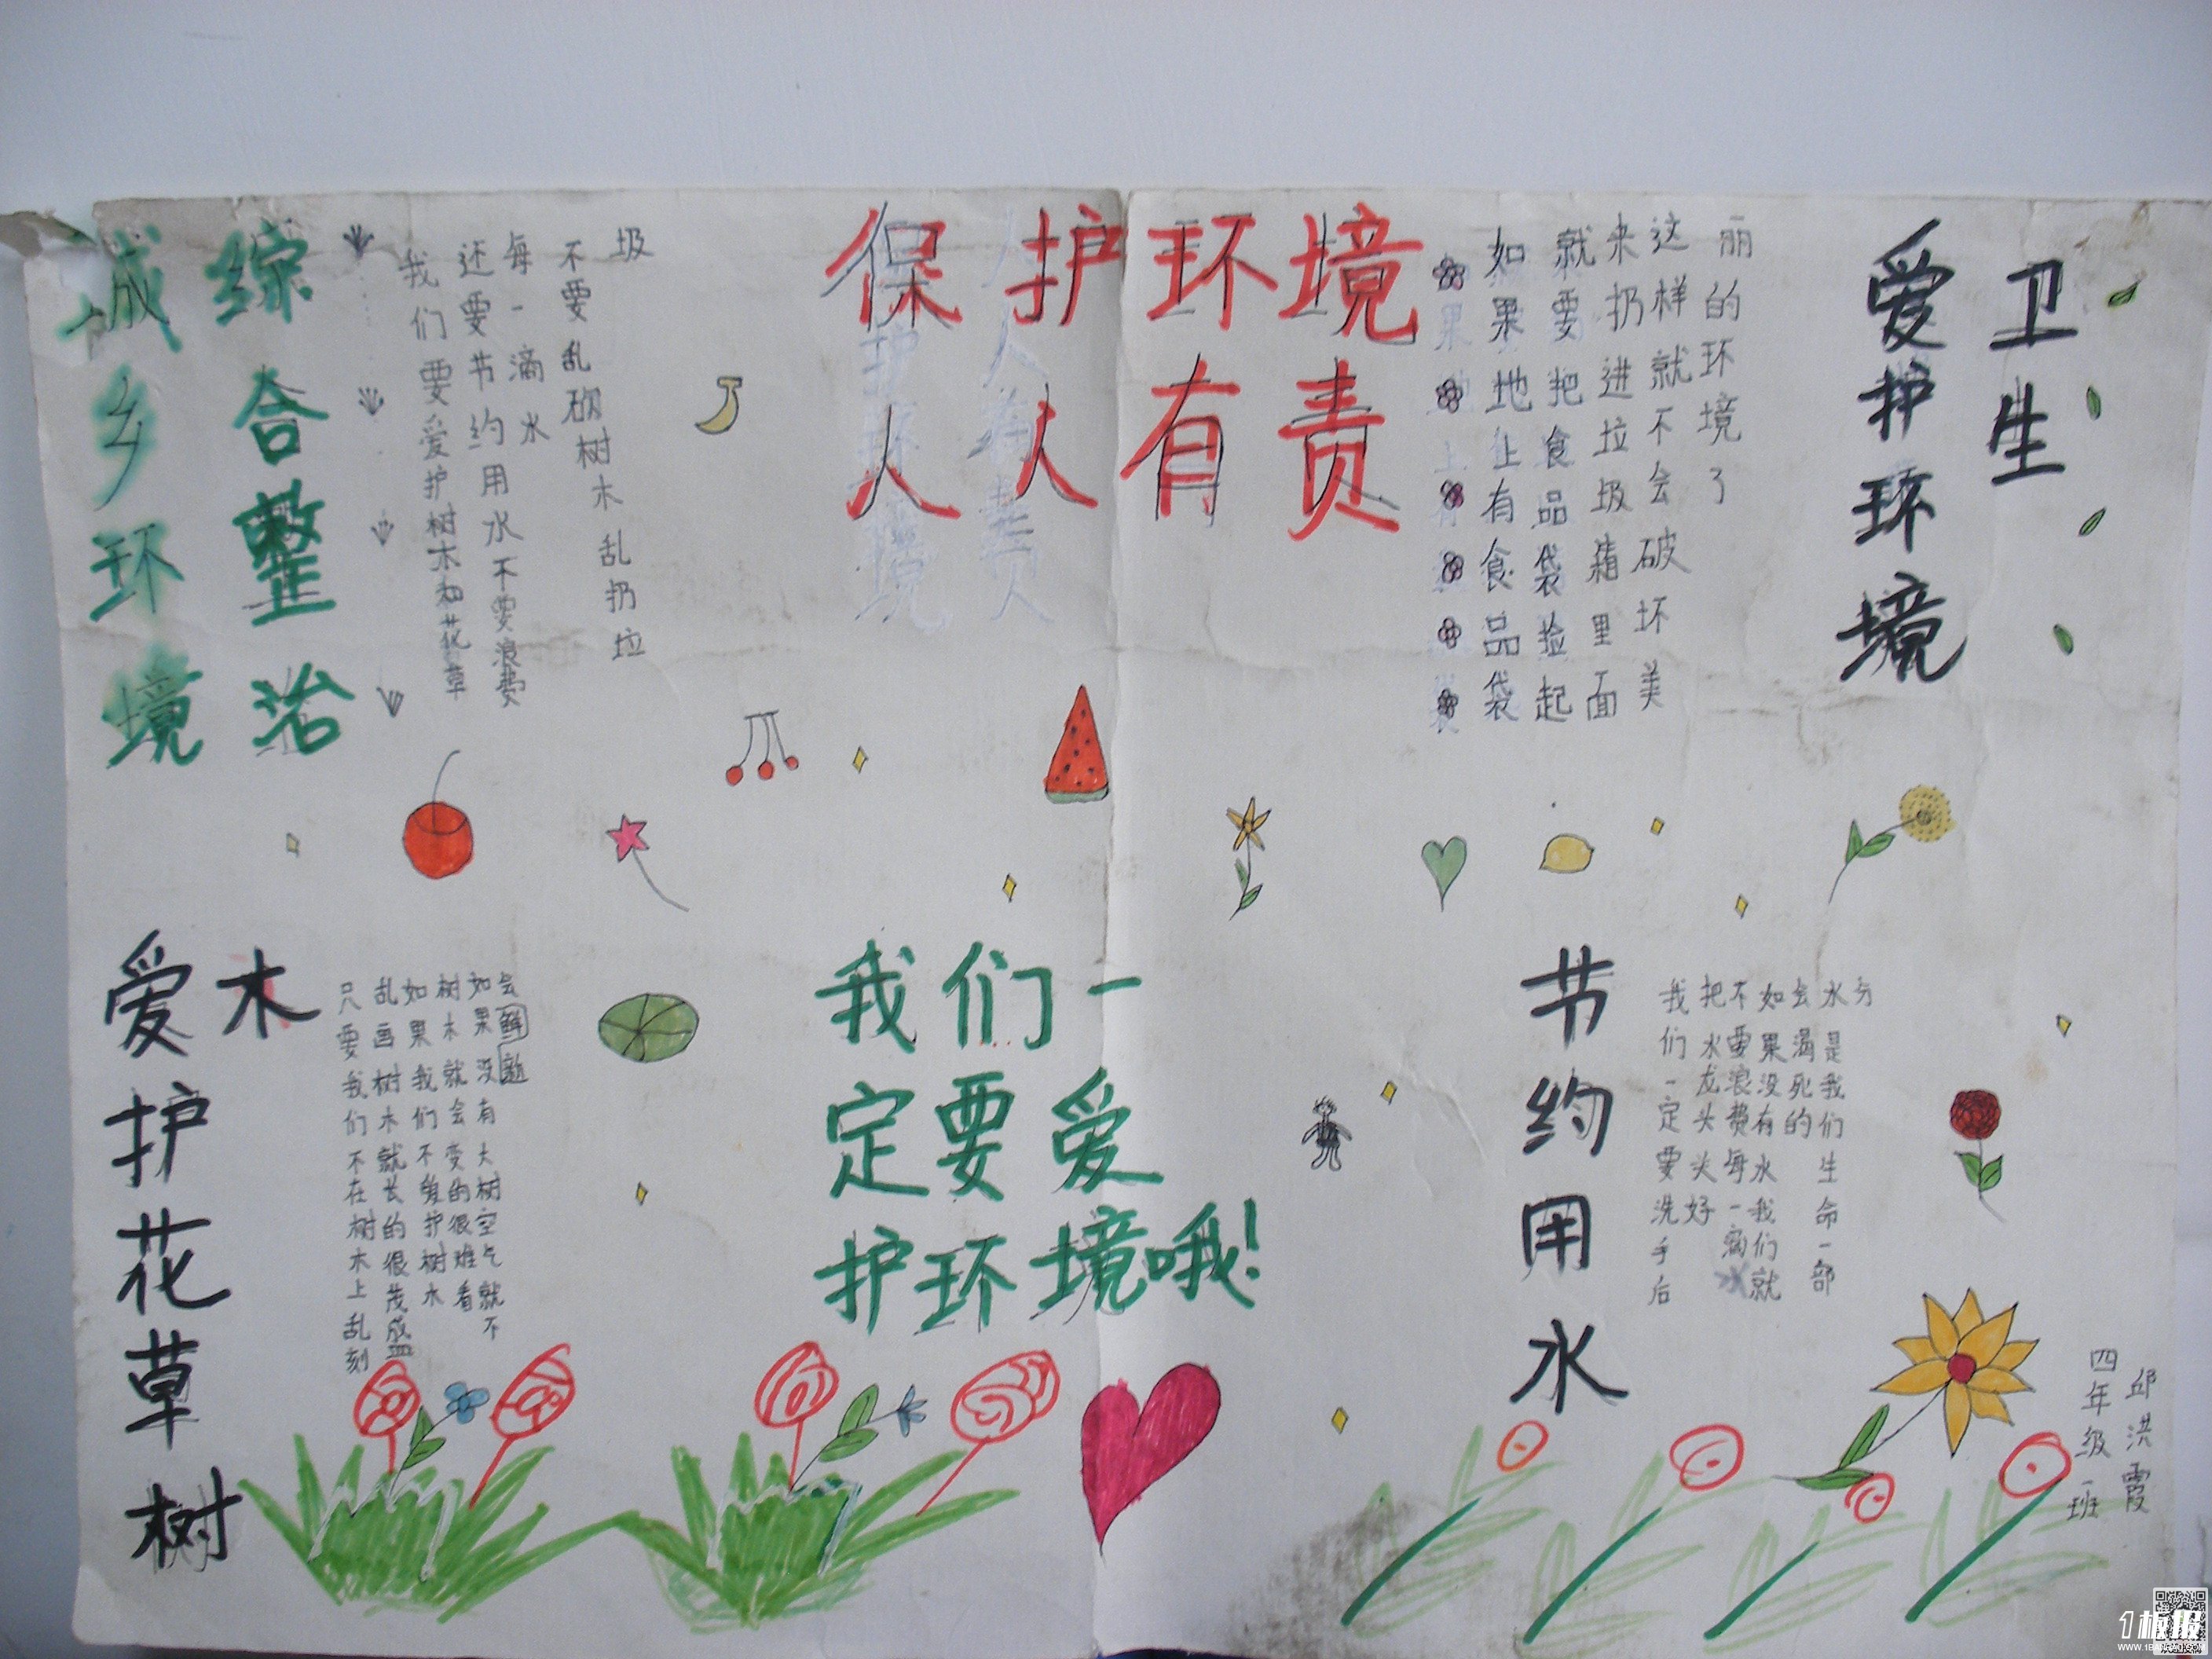 保护环境
人人有责
城乡环境
综合整治
我们要爱护树木和花草
还要节约用水不要浪费
每一滴水
不要乱砍树木乱扔垃
圾
如果地上有食品袋
就要把食品袋捡起
来扔进垃圾箱里面
这样就不会破坏美
丽的环境了
爱护环境
卫生
爱护花草树
木
只要我们不在树木上乱刻
乱画树木就长的很茂盛
如果我们不爱护树木
树木就会变的很难看
如果没有大树空气就不
会
我们一
定要爱
护环境哦!
节约用水
我们一定要洗手后
把水龙头关好
不要浪费每一滴水
如果没有水我们就
会渴死的
水是我们生命一部
分
四年级一班
邱洪霞
1板报
WWW.1BANBAO.COM